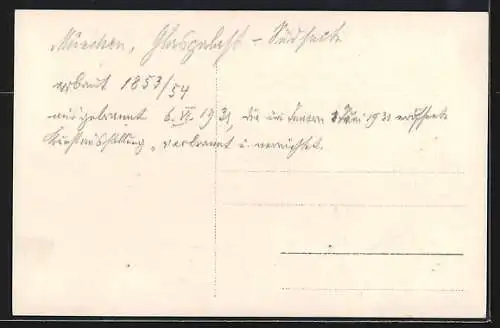 München, Glaspalast - Südseite
erbaut 1853/54
ausgebrannt 6. VI. 1931, die im 1. Juni 1931 eröffnete
Kunstausstellung, verbrannt u. vernichtet.